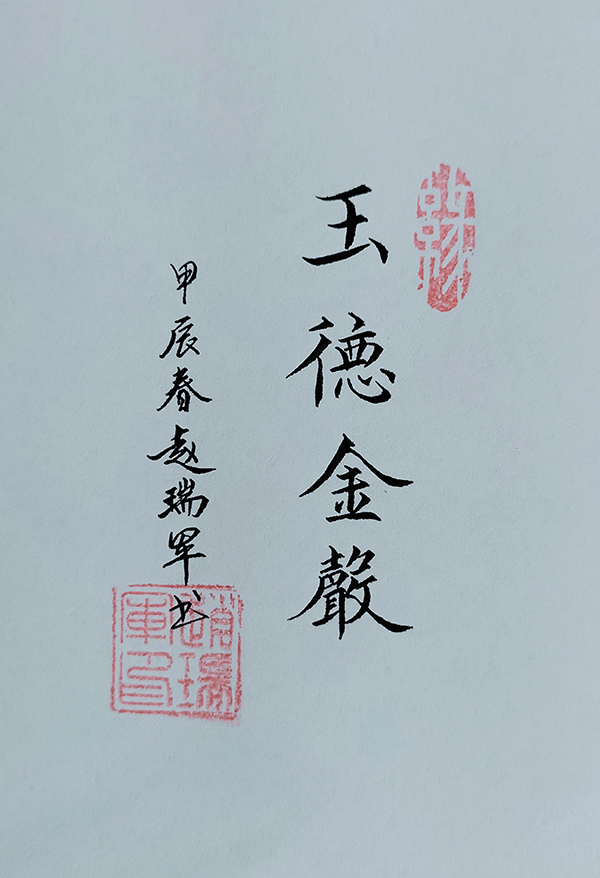 玉德金聲
甲辰春赵瑞军书
趙瑞
軍印